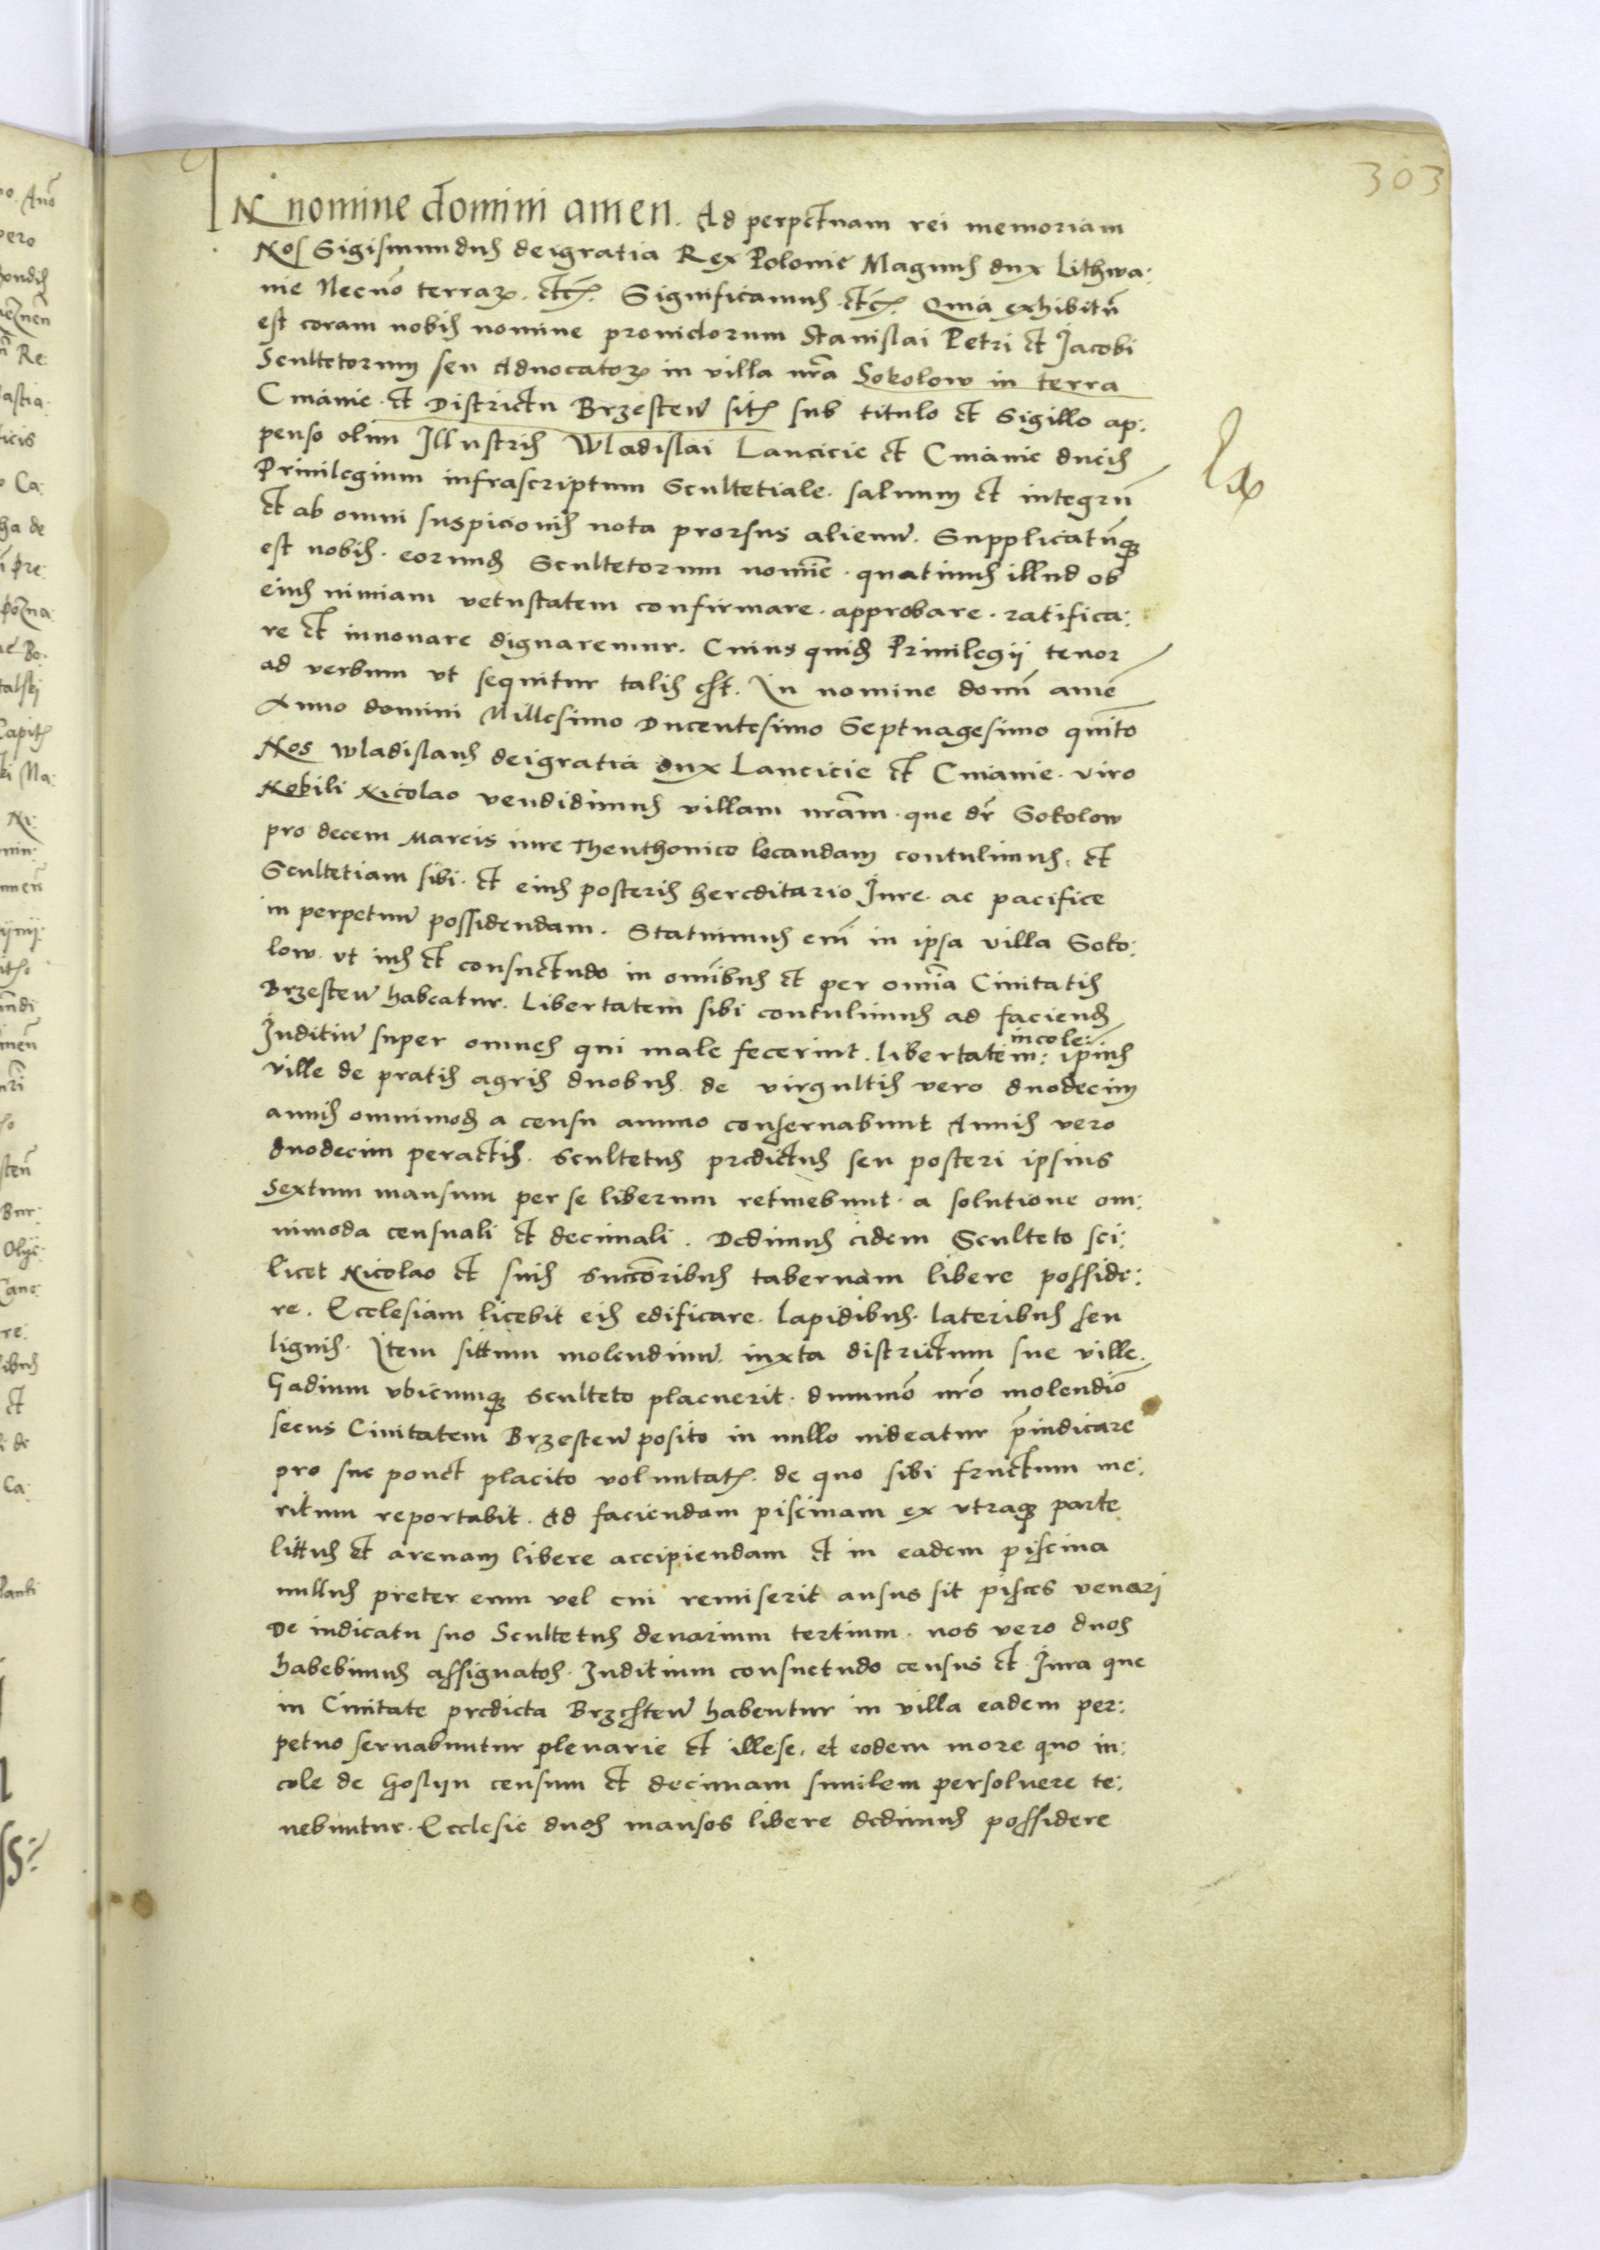 303
IN nomine domini amen. Ad perpetuam rei memoriam
Nos Sigismundus dei gratia Rex Polonie Magnus dux Lithwa:
nie Necnō terrarꝝ. etcꝫ. Significamus. etcꝫ. Quia exhibitū
est coram nobis nomine prouidorum Stanislai Petri et Jacobi
Scultetorum seu Aduocatorꝝ in villa nrā Sokolow in terra
Cuiauie. et Districtu Brzesten̄ sitꝫ sub titulo et Sigillo ap:
penso olim Illustris Wladislai Lancicie et Cuiauie ducis
Priuilegium infrascriptum Scultetiale. saluum et integrū
et ab omni suspicionis nota prorsus alienū. Supplicatūqꝫ
est nobis. eorund̄ Scultetorum noīē. quatinus illud ob
eius nimiam vetustatem confirmare. approbare. ratifica:
re et innouare dignaremur. Cuius quid̄ Priuilegii tenor
ad verbum vt sequitur talis est. In nomine domī amē
Anno domini Millesimo Ducentesimo Septuagesimo quīto
Nos Wladislaus dei gratia dux Lancicie et Cuiauie. viro
Nobili Nicolao vendidimus villam nrām. que dr̄ Sokolow
pro decem Marcis iure Theuthonico locandam contulimus. et
Scultetiam sibi. et eius posteris hereditario Jure. ac pacifice
in perpetuū possidendam. Statuimus enī in ipsa villa Soko:
low. vt ius et consuetudo in omībus et per omīa Ciuitatis
Brzesten̄ habeatur. Libertatem sibi contulimus ad faciend̄
Juditiū super omnes qui male fecerint. Libertatem: ipsius
incole:
ville de pratis agris duobus. de virgultis vero duodecim
annis omnimod̄ a censu annuo conseruabunt Annis vero
duodecim peractis. Scultetus predictus seu posteri ipsius
Sextum mansum per se liberum retinebunt. a solutione om:
nimoda censuali et decimali. Dedimus eidem Sculteto sci:
licet Nicolao et suis succōribus tabernam libere posside:
re. Ecclesiam licebit eis edificare. lapidibus. lateribus seu
lignis. Item sittum molendinū. iuxta districtum sue ville.
Gadium vbicumqꝫ Sculteto placuerit. dummō nrō molendiō
secus Ciuitatem Brzesten̄ posito in nullo uideatur p̄iudicare
pro sue ponet placito voluntatꝫ. de quo sibi fructum me:
ritum reportabit. Ad faciendam piscinam ex vtraqꝫ parte
littus et arenam libere accipiendam et in eadem piscina
nullus preter eum vel cui remiserit ausus sit pisces venari
De iudicatu suo Scultetus denarium tertium. nos vero duos
habebimus assignatos. Juditium consuetudo census et Jura que
in Ciuitate predicta Brzesten̄ habentur in villa eadem per:
petuo seruabuntur plenarie et illese. et eodem more quo in:
cole de Gostyn censum et decimam similem persoluere te:
nebuntur. Ecclesie duos mansos libere dedimus possidere